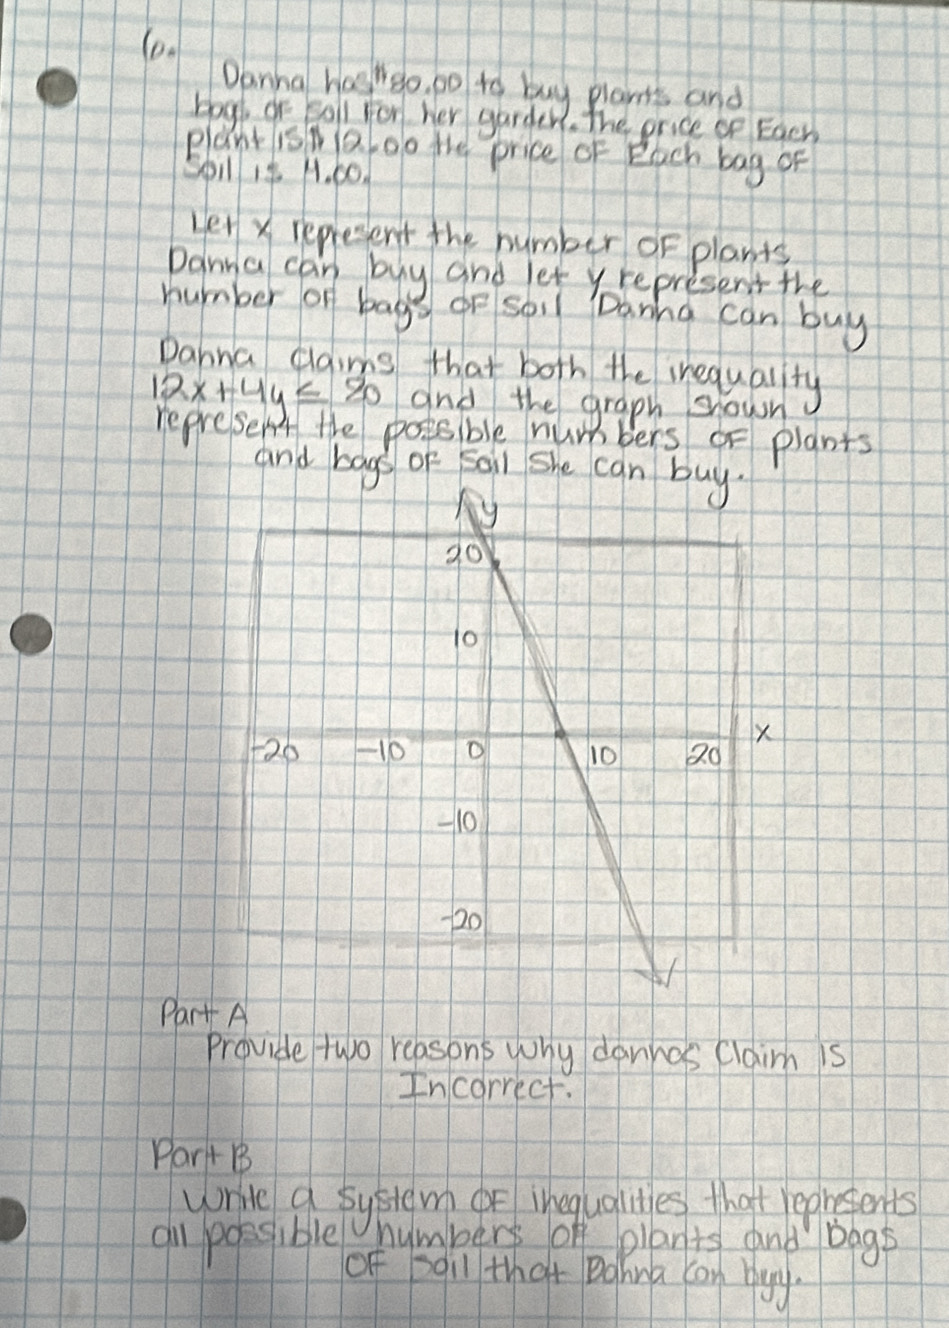 10.
Danna has $80.00 to buy plants and
bags of soil for her garden. The price of Each
plant is $12.00 the price of Each bag of
soil is 4.00.
Let x represent the number of plants
Danna can buy and let y represent the
number of bags of soil Danna can buy
Danna claims that both the inequality
12x+4y ≤ 80 and the graph shown
represent the possible numbers of plants
and bags of soil she can buy.
y
20
10
x
-20 -10 0 10 20
-10
-20
Part A
Provide two reasons why dannas claim is
Incorrect.
Part B
Write a system of inequalities that represents
all possible numbers of plants and bags
of soil that Danna can buy.